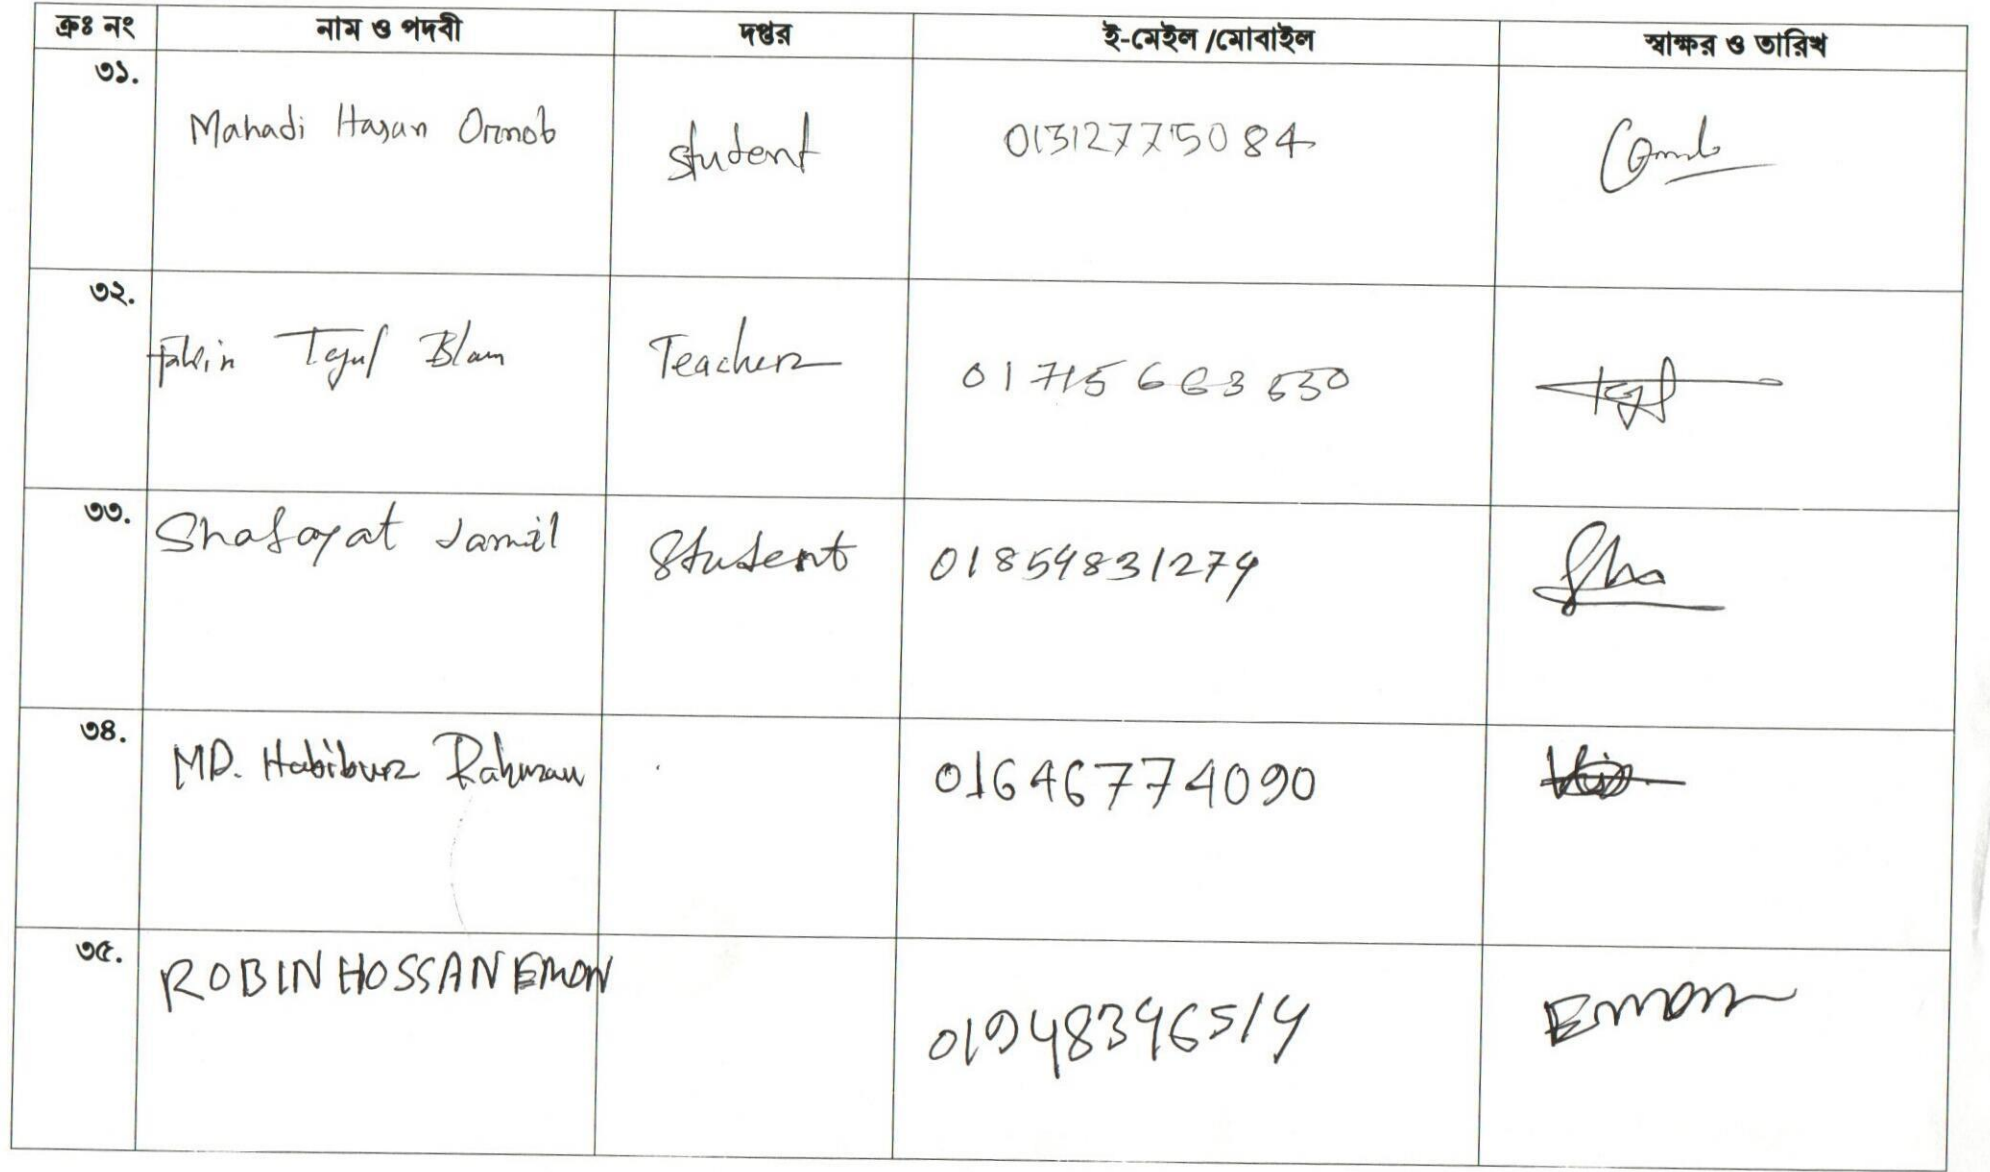 ক্রঃ নং নাম ও পদবী দপ্তর ই-মেইল /মোবাইল স্বাক্ষর ও তারিখ
৩১. Mahadi Hasan Ornob student 01312775084
৩২. Teacher 01715663530
৩৩. Shafayat Jamil Student 01859831279
৩৪. MD. Habibur Rahman 01646774090
৩৫. ROBIN HOSSAN EMON 01948396514 Emon